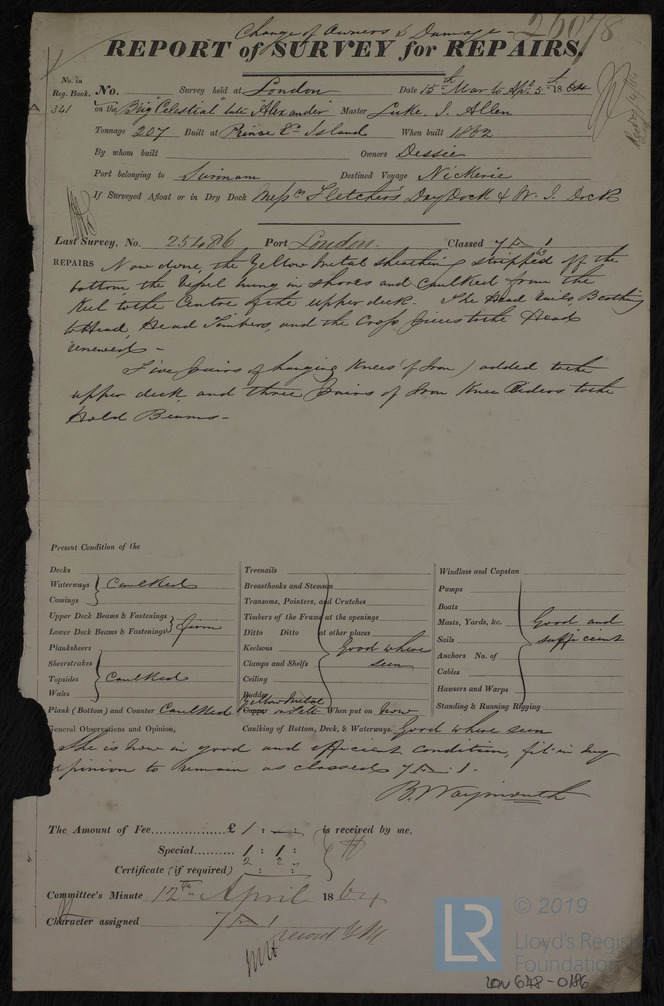 Change of Owners & Damage -
25078
REPORT of SURVEY for REPAIRS.
No. in
Reg. Book. No. Survey held at London Date 15th Mar to Apl 5th 1864
341 on the Brig "Celestial" late "Alexander" Master Luke. J. Allen
Tonnage 207 Built at Prince Ed Island When built 1862
By whom built Owners Dessie
Port belonging to Surinam Destined Voyage Nickerie
If Surveyed Afloat or in Dry Dock Messrs Fletchers Dry Dock & W. I. Dock
Last Survey, No. 25486 Port London. Classed 7 A 1
63
REPAIRS Now done, the Yellow Metal sheathing stripped off the
bottom the vessel hung in shores and caulked from the
Keel to the Centre of the upper deck. The Head rails Berthing
to Head, Head Timbers, and the Cross pieces to the Head
renewed -
Five pairs of hanging Knees (of Iron) added to the
upper deck and three pairs of Iron Knee Riders to the
Hold Beams -
Present Condition of the
Decks
Waterways Caulked
Comings
Upper Deck Beams & Fastenings
Lower Deck Beams & Fastenings Firm
Planksheers
Sheerstrakes
Topsides Caulked
Wales
Plank (Bottom) and Counter Caulked
Treenails
Breasthooks and Stemson
Transoms, Pointers, and Crutches
Timbers of the Frame at the openings
Ditto Ditto at other places
Keelsons Good where
Clamps and Shelfs seen
Ceiling
Rudder
Yellow Metal
Copper or Felt When put on now
Windlass and Capstan
Pumps
Boats
Masts, Yards, &c. Good and
Sails sufficient
Anchors No. of
Cables
Hawsers and Warps
Standing & Running Rigging
General Observations and Opinion, Caulking of Bottom, Deck, & Waterways. Good where seen
She is now in good and efficient condition, fit in my
opinion to remain as classed 7 A 1.
B. Waymouth
The Amount of Fee £ 1 : — : is received by me,
Special 1 : 1 :
Certificate (if required) 2 2
Committee's Minute 12th April 1864
Character assigned 7 A 1
record YM
LR © 2019
Lloyd's Register
Foundation
LON 648-0186